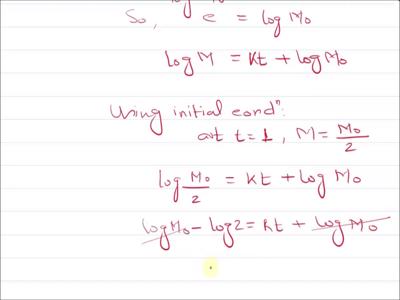 log
So, c = log M₀
log M = Kt + log M₀
Using initial condⁿ.
at t = 1, M = M₀/2
log M₀/2 = Kt + log M₀
log M₀ - log 2 = Kt + log M₀